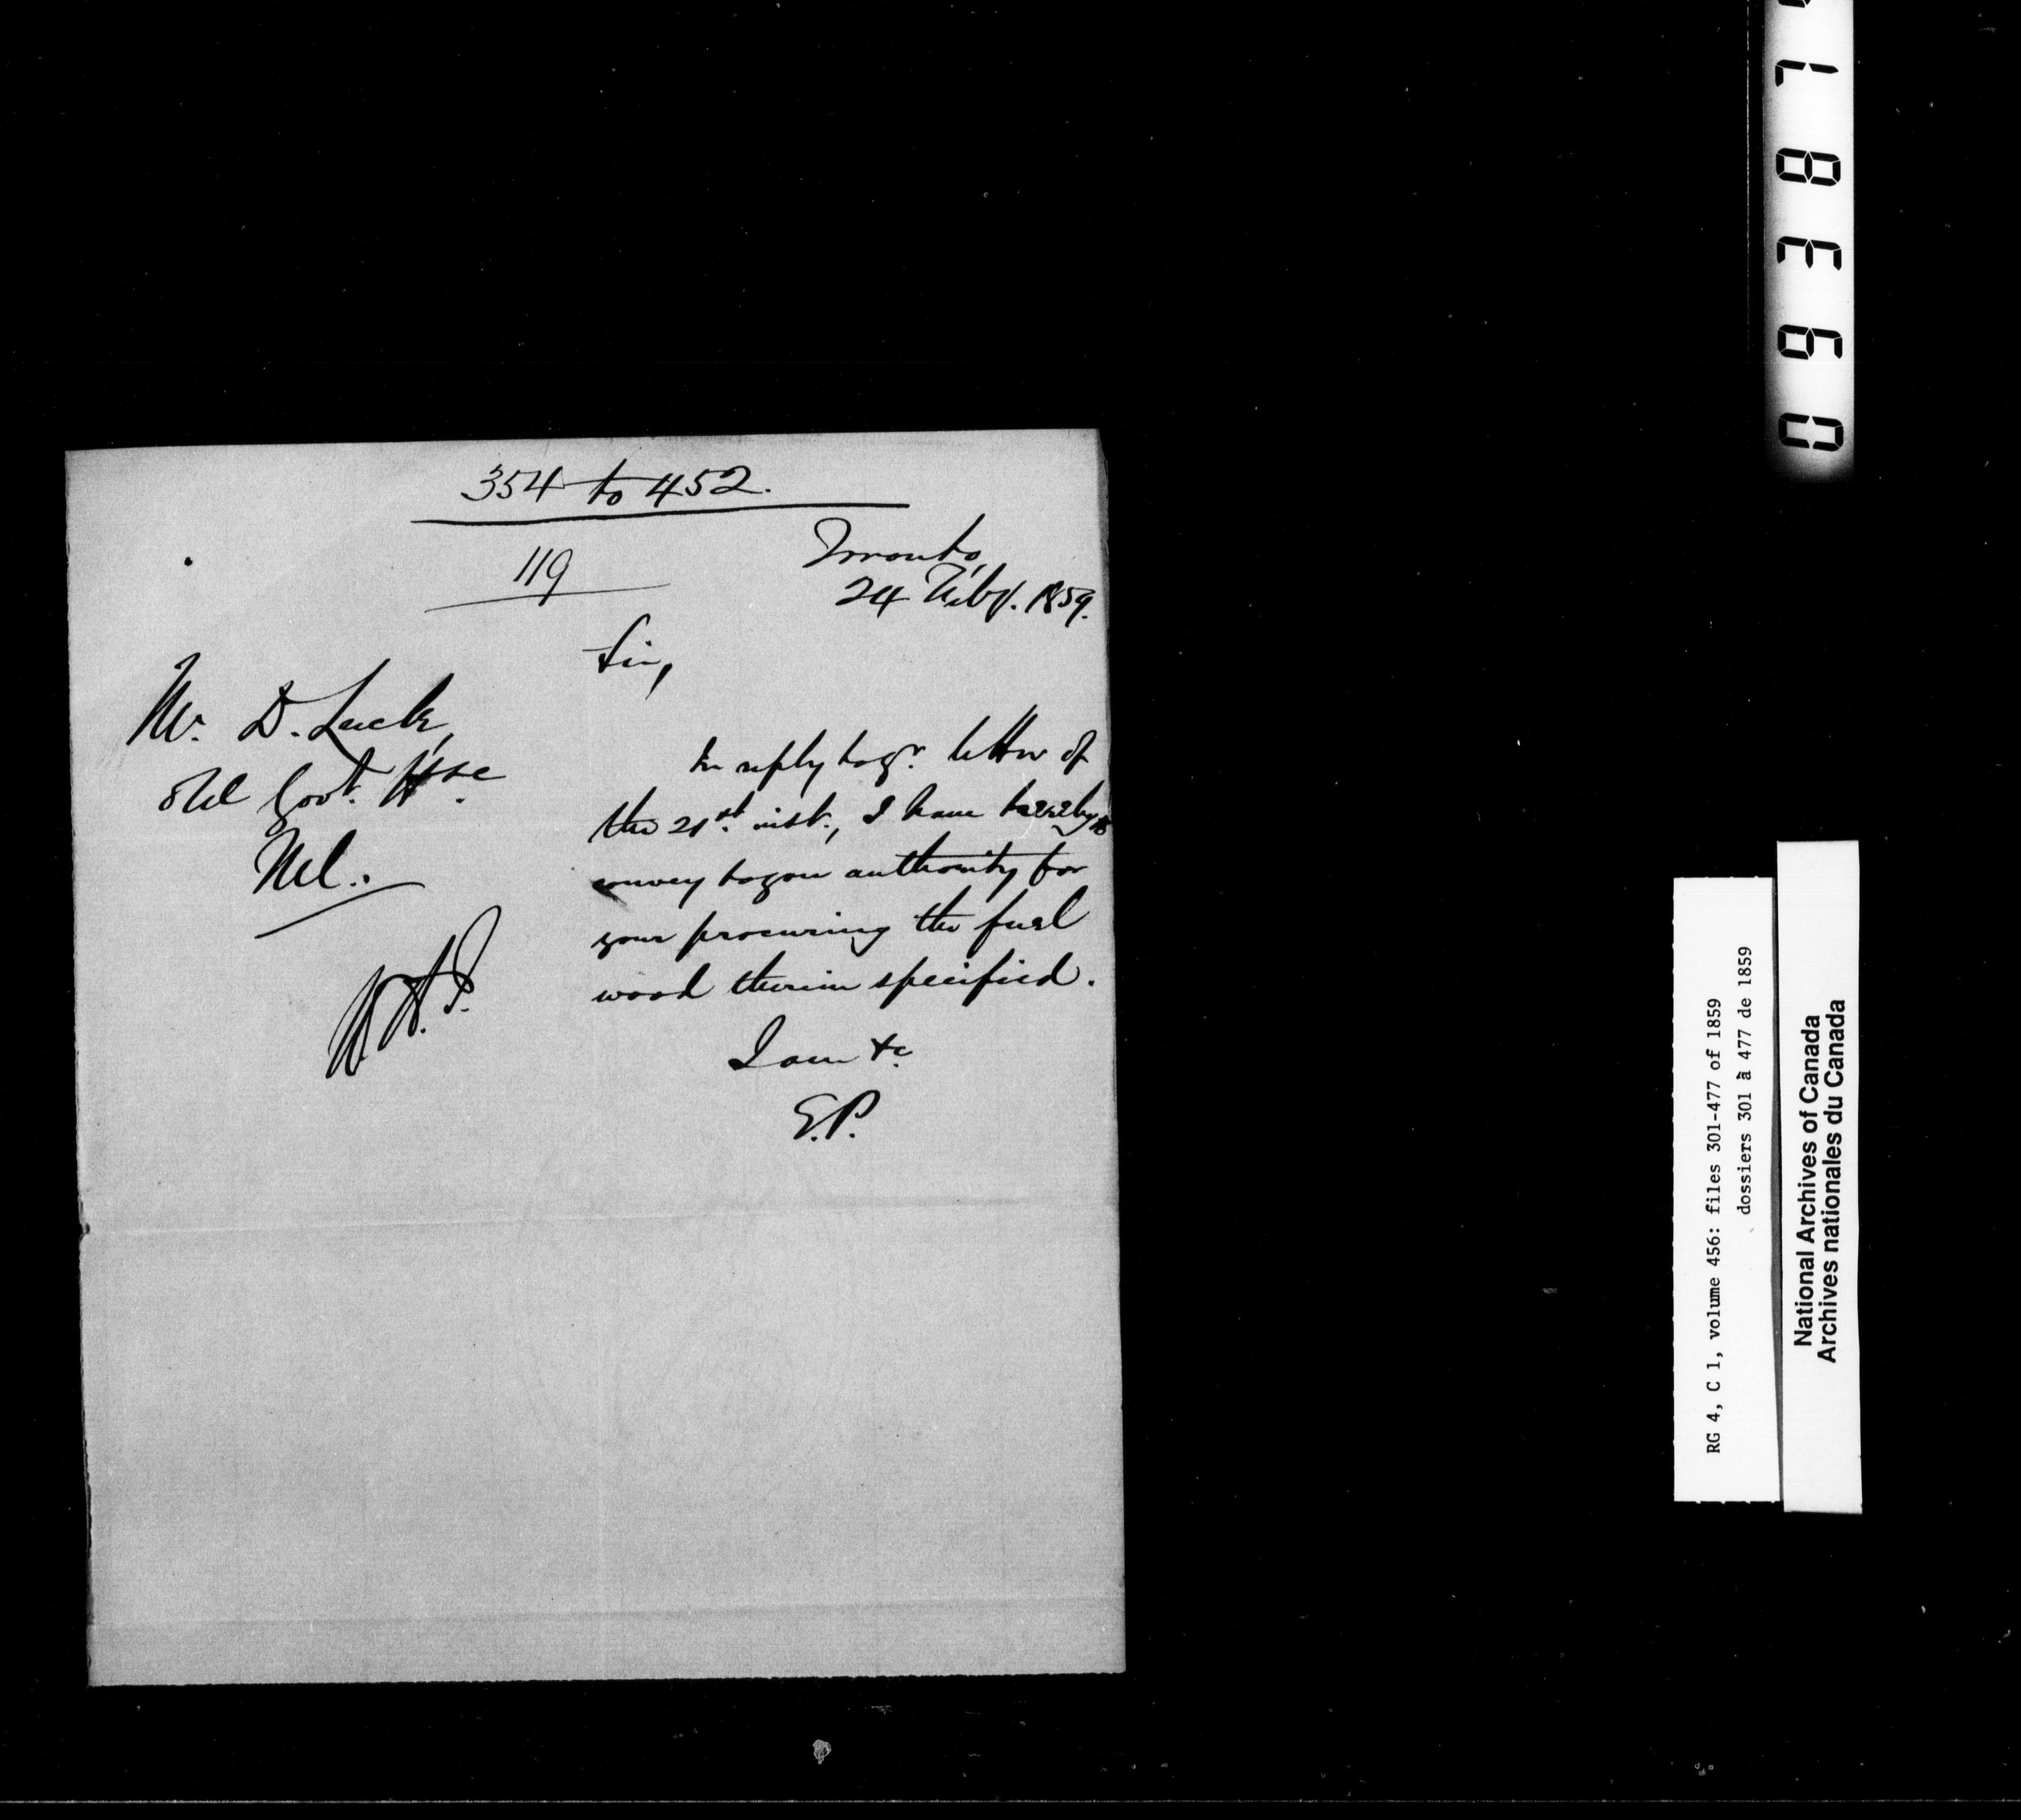 354 to 452.
119
Toronto,
24 Feby. 1859.
Sir,
Mr. D. Luck,
Old Govt. Hse.
Mel.
In reply to yr. letter of
the 21st. inst., I have hereby to
convey to you authority for
your procuring the fuel
wood therein specified.
I am &c.
E.P.
RG 4, C 1, volume 456: files 301-477 of 1859
dossiers 301 à 477 de 1859
National Archives of Canada
Archives nationales du Canada